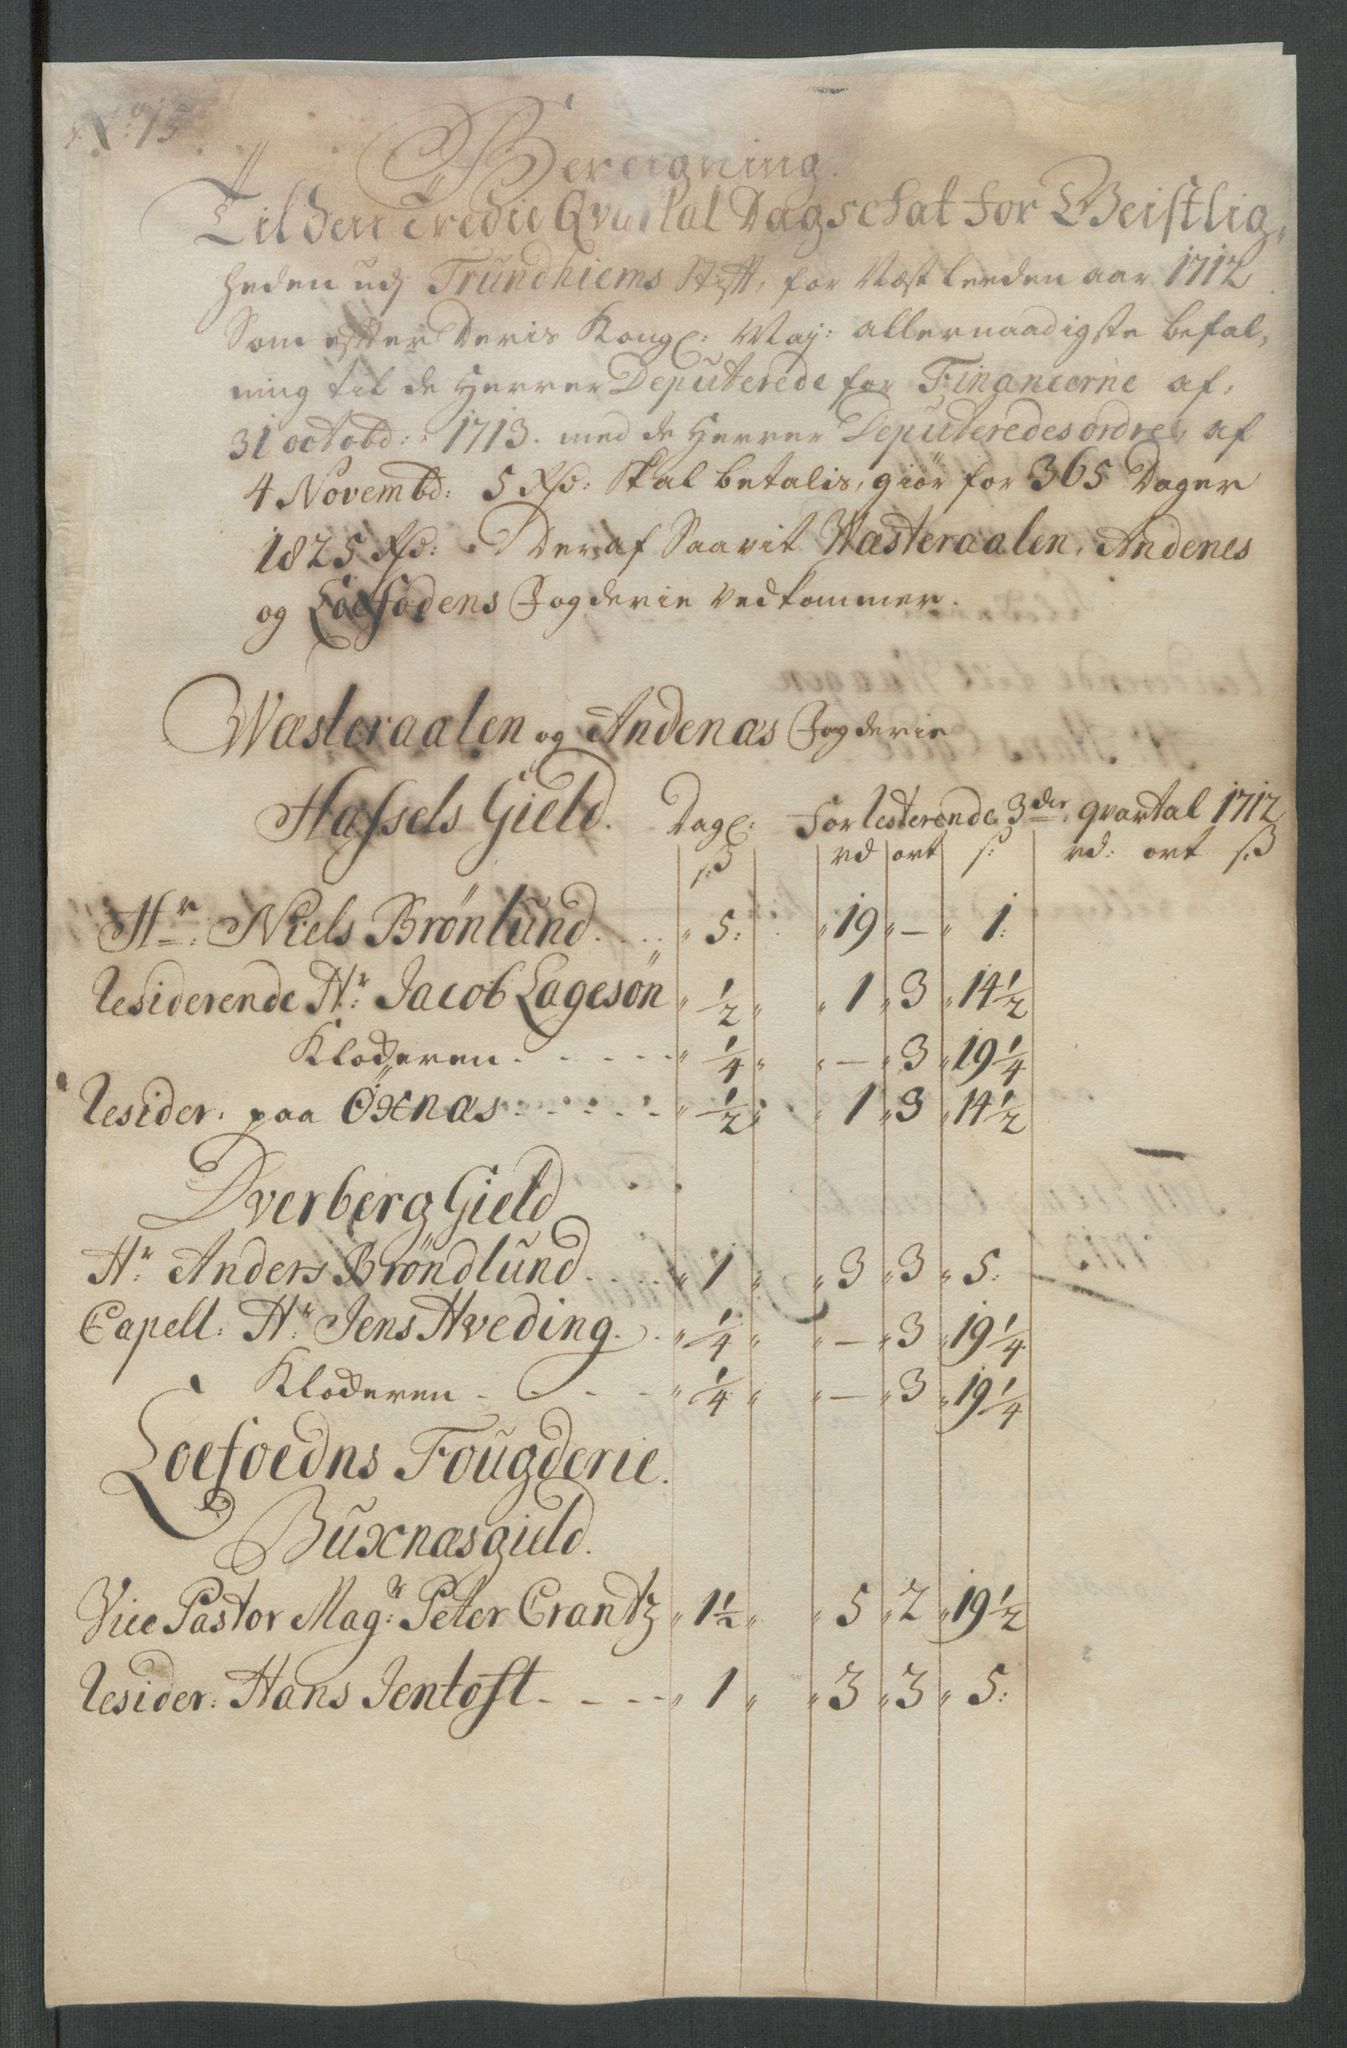 No: 15
Bereigning.
Til den tredie Qvartal Dagschat for Geistlig,
heden udj Trundhiems Stifft, for Næst leeden aar 1712
Som efter Deris Kongl: May: allernaadigste befal,
ning til de Herrer Deputerede for Financerne af,
31 octobd: 1713. med de Herrer Deputeredes ordre, af
4 Novembd: 5 Rd: Skal betalis, giör for 365 Dager
1825 Rd: Deraf Saavit Wæsteraalen, Andenes
og Loefodens Fogderie Vedkommer.
Wæsteraalen og Andenæs Fogderie
Hassels Gield. Dagl: For resterende 3die qvartal 1712
sß rd ort s: rd: ort sß
Hr: Niels Brönlund. . . . 5: 19 — 1:
Residerende Hr: Jacob Lagesön 1/2 1 3 14 1/2
Klockeren. - - - - 1/4 — 3 19 1/4
Resider: paa Öxnæs - - - - 1/2 1 3 14 1/2
Dverberg Gield
Hr: Anders Bröndlund. . . . 1 3 3 5:
Capell: Hr: Jens Hveding. . 1/4 — 3 19 1/4
Klockeren - - - - 1/4 — 3 19 1/4
Loefoedns Fougderie.
Buxnæsgield.
Vice Pastor Magr: Peter Crantz 1 1/2 5 2 19 1/2
Resider: Hans Jentoft. - - - 1 3 3 5: